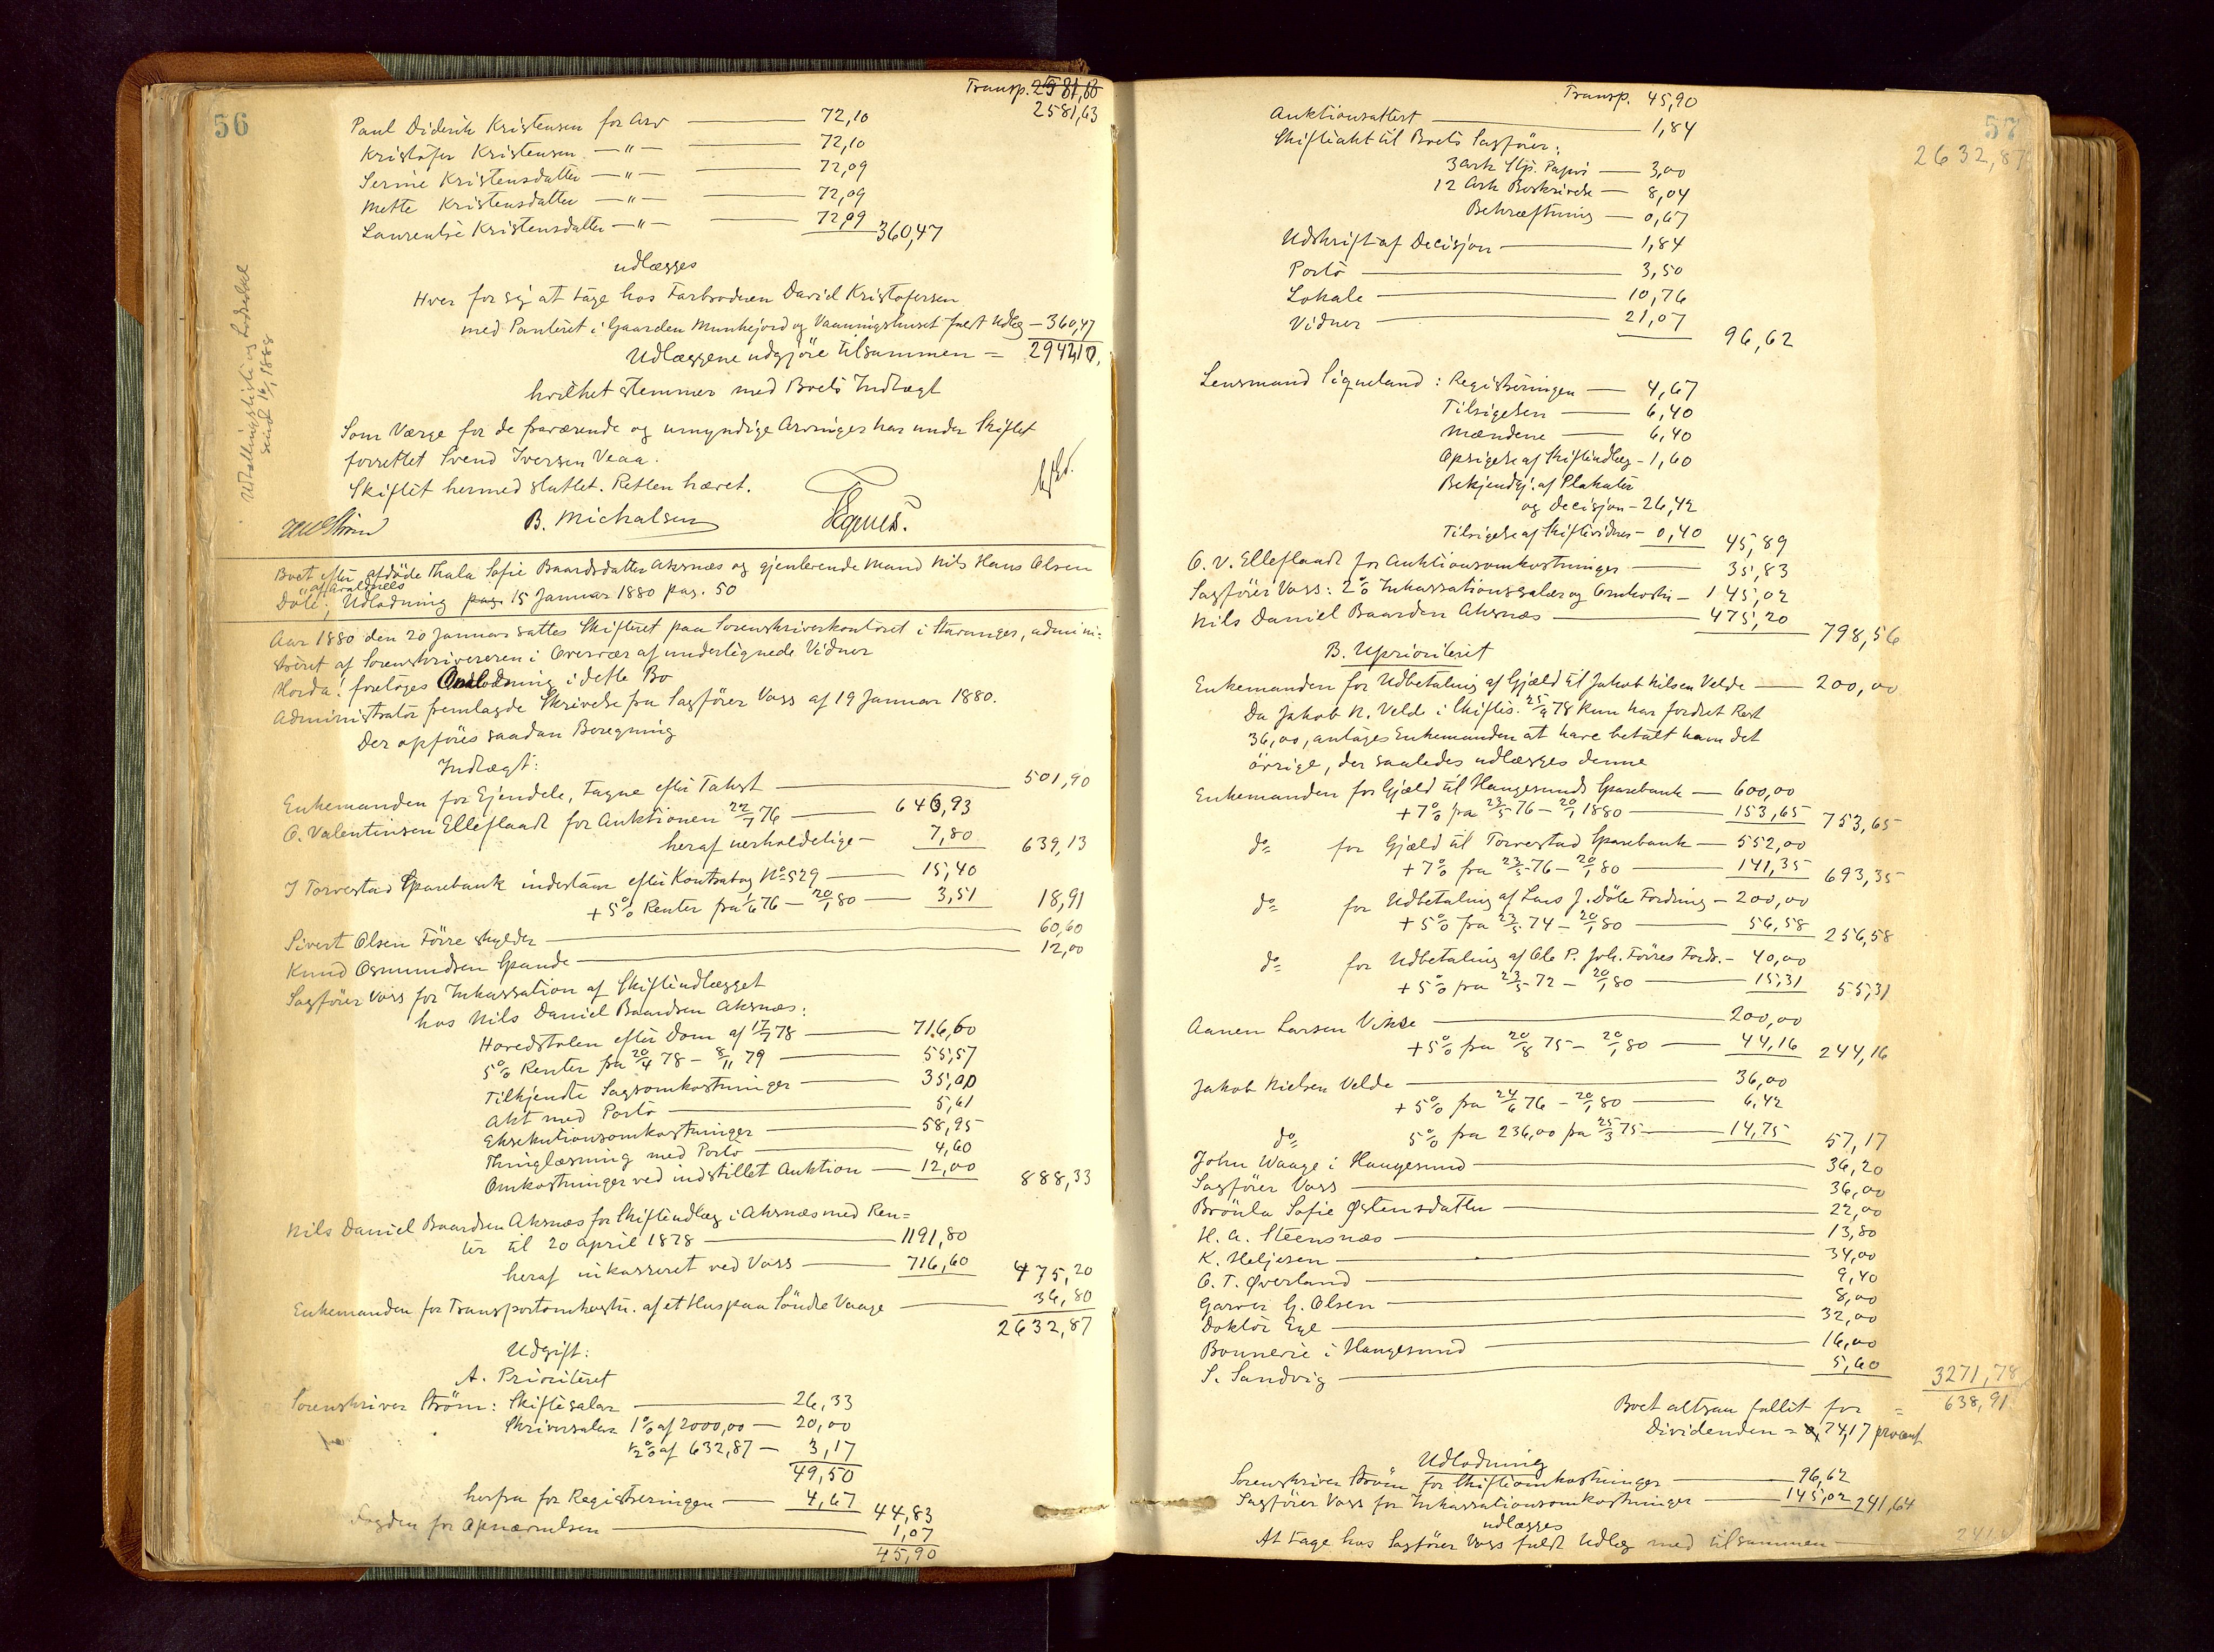 56
Transp. 2581,63
2581,63
Paul Diderik Kristensen for Arv 72,10
Kristofer Kristensen —"— 72,10
Serine Kristensdatter —"— 72,09
Mette Kristensdatter —"— 72,09
Laurentse Kristensdatter —"— 72,09 360,47
udlægges
Hver for sig at tage hos Farbroderen David Kristofersen
med Panteret i Gaarden Munkejord og Vaaningshuset fuldt Udlæg — 360,47
Udlæggene udgjøre tilsammen = 2942,10.
hvilket stemmer med Boets Indtægt
Som Værge for de fraværende og umyndige Arvinger har under Skiftet
forrettet Svend Iversen Veaa.
Skiftet hermed sluttet. Retten hævet.
B. Michalsen
Udtallingsliste og Lodseddel
send 16/1 1888
Boet efter afdøde Thala Sofie Baardsdatter Aksnæs og gjenlevende Mand Nils Hans Olsen
Døle, af Avaldsnes Udlodning pag. 15 Januar 1880 pag. 50
Aar 1880 den 20 Januar sattes Skifteret paa Sorenskriverkontoret i Stavanger, admini-
streret af Sorenskriveren i Overvær af undertegnede Vidner
Hvorda! foretages Omlodning i dette Bo
Administrator fremlagde Skrivelse fra Sagfører Voss af 19 Januar 1880.
Der opføres saadan Beregning
Indtægt:
Enkemanden for Ejendele, tagne efter Takst 501,90
O. Valentinsen Elleflaadt for Auktionen 22/7 76 — 646,93
heraf uerholdelige — 7,80 639,13
I Torvestad Sparebank indestaar efter Kontrabog No 529 — 15,40
+ 5% Renter fra 1/6 76 — 20/1 80 — 3,51 18,91
Sivert Olsen Førre skylder 60,60
Knud Osmundsen Spande 12,00
Sagfører Voss for Inkassation af Skifteudlægget
hos Nils Daniel Baardsen Aksnæs:
Hovedstolen efter Dom af 17/7 78 — 716,60
5% Renter fra 20/4 78 — 8/11 79 — 55,57
Tilkjendte Sagsomkostninger — 35,00
Akt med Porto — 5,61
Eksekutionsomkostninger — 58,95
Thinglæsning med Porto — 4,60
Omkostninger ved indstillet Auktion — 12,00 888,33
Nils Daniel Baardsen Aksnæs for Skifteudlæg i Aksnæs med Ren=
ter til 20 April 1878 — 1191,80
heraf inkasseret ved Voss — 716,60 475,20
Enkemanden for Transportomkostn. af et Hus paa Søndre Vaage — 36,80
2632,87
Udgift:
A. Prioriteret
Sorenskriver Strøm: Skiftesalær — 26,33
Skriversalær 1% af 2000,00 — 20,00
½% af 632,87 — 3,17
49,50
herfra for Registreringen — 4,67 44,83
Fogden for Opnævnelsen — 1,07
45,90
57
2632,87
Transp. 45,90
Auktionsattest — 1,84
Skifteakt til Boets Sagfører:
3 Ark Stp. Papir — 3,00
12 Ark Beskrivelse — 8,04
Bekræftning — 0,67
Udskrift af Decisjon — 1,84
Porto — 3,50
Lokale — 10,76
Vidner — 21,07 96,62
Lensmand Siqueland: Registeringen — 4,67
Tilsigelsen — 6,40
Mændene — 6,40
Opsigelse af Skifteudlæg — 1,60
Bekjendtg. af Plakater
og Decisjon — 26,42
Tilsigelse af Skiftevidner — 0,40 45,89
O. V. Elleflaadt for Auktionsomkostninger — 35,83
Sagfører Voss: 2% Inkassationssalær og Omkostn — 145,02
Nils Daniel Baardsen Aksnæs — 475,20 798,56
B. Uprioriteret
Enkemanden for Udbetaling af Gjæld til Jakob Nilsen Velde — 200,00
Da Jakob N. Velde i Skiftes. 25/9 78 kun har fordret Rest
36,00, antages Enkemanden at have betalt ham det
øvrige, der saaledes udlægges denne
Enkemanden for Gjæld til Haugesunds Sparebank — 600,00
+ 7% fra 23/5 76 — 20/1 1880 — 153,65 753,65
do for Gjæld til Torvestad Sparebank — 552,00
+ 7% fra 23/5 76 — 20/1 80 — 141,35 693,35
do for Udbetaling af Lars J. Døle Fordring — 200,00
+ 5% fra 23/5 74 — 20/1 80 — 56,58 256,58
do for Udbetaling af Ole P. Joh. Førres Fordr. — 40,00
+ 5% fra 23/5 72 — 20/1 80 — 15,31 55,31
Aanen Larsen Vikse — 200,00
+ 5% fra 20/8 75 — 20/1 80 — 44,16 244,16
Jakob Nielsen Velde — 36,00
+ 5% fra 24/6 76 — 20/1 80 — 6,42
do 5% fra 236,00 fra 25/3 75 — 14,75 57,17
John Waage i Haugesund — 36,20
Sagfører Voss — 36,00
Brønla Sofie Østensdatter — 22,00
H. A. Steensnæs — 13,80
K. Heljesen — 34,00
O. T. Øverland — 9,40
Garver G. Olsen — 8,00
Doktor Ege — 32,00
Bonnevie i Haugesund — 16,00
S. Sandvig — 5,60 3271,78
Boet altsaa fallit for = 638,91
Dividenden = 74,17 procent
Udlodning
Sorenskriver Strøm for Skifteomkostninger — 96,62
Sagfører Voss for Inkassationsomkostninger — 145,02 241,64
udlægges
At tage hos Sagfører Voss fuldt Udlæg med tilsammen — 241,6